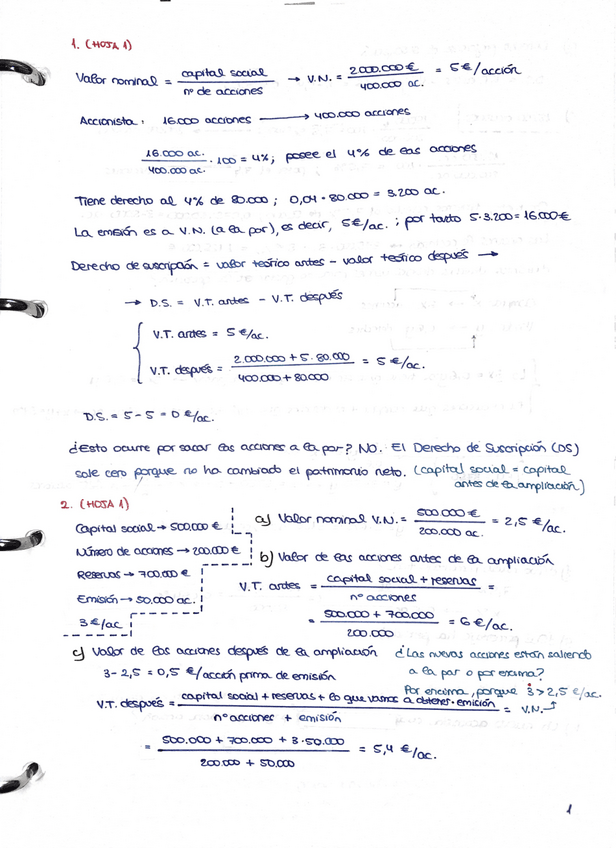 1. (HOJA 1)
Valor nominal = capital social / nº de acciones → V.N. = 2.000.000 € / 400.000 ac. = 5 €/acción
Accionista: 16.000 acciones → 400.000 acciones
16.000 ac. / 400.000 ac. · 100 = 4%; posee el 4% de las acciones
Tiene derecho al 4% de 80.000; 0,04 · 80.000 = 3.200 ac.
La emisión es a V.N. (a la par), es decir, 5€/ac.; por tanto 5·3.200 = 16.000€
Derecho de suscripción = valor teórico antes − valor teórico después →
→ D.S. = V.T. antes − V.T. después
V.T. antes = 5 €/ac.
V.T. después = 2.000.000 + 5·80.000 / 400.000 + 80.000 = 5 €/ac.
D.S. = 5 − 5 = 0 €/ac.
¿Esto ocurre por sacar las acciones a la par? NO. El Derecho de Suscripción (DS)
sale cero porque no ha cambiado el patrimonio neto. (capital social = capital
antes de la ampliación)
2. (HOJA 1)
Capital social → 500.000 €
Número de acciones → 200.000 €
Reservas → 700.000 €
Emisión → 50.000 ac.
3 €/ac
a) Valor nominal V.N. = 500.000 € / 200.000 ac. = 2,5 €/ac.
b) Valor de las acciones antes de la ampliación
V.T. antes = capital social + reservas / nº acciones =
= 500.000 + 700.000 / 200.000 = 6 €/ac.
c) Valor de las acciones después de la ampliación
¿Las nuevas acciones están saliendo
a la par o por encima?
Por encima, porque 3 > 2,5 €/ac.
V.N.
3 − 2,5 = 0,5 €/acción prima de emisión
V.T. después = capital social + reservas + lo que vamos a obtener · emisión / nº acciones + emisión =
= 500.000 + 700.000 + 3·50.000 / 200.000 + 50.000 = 5,4 €/ac.
1